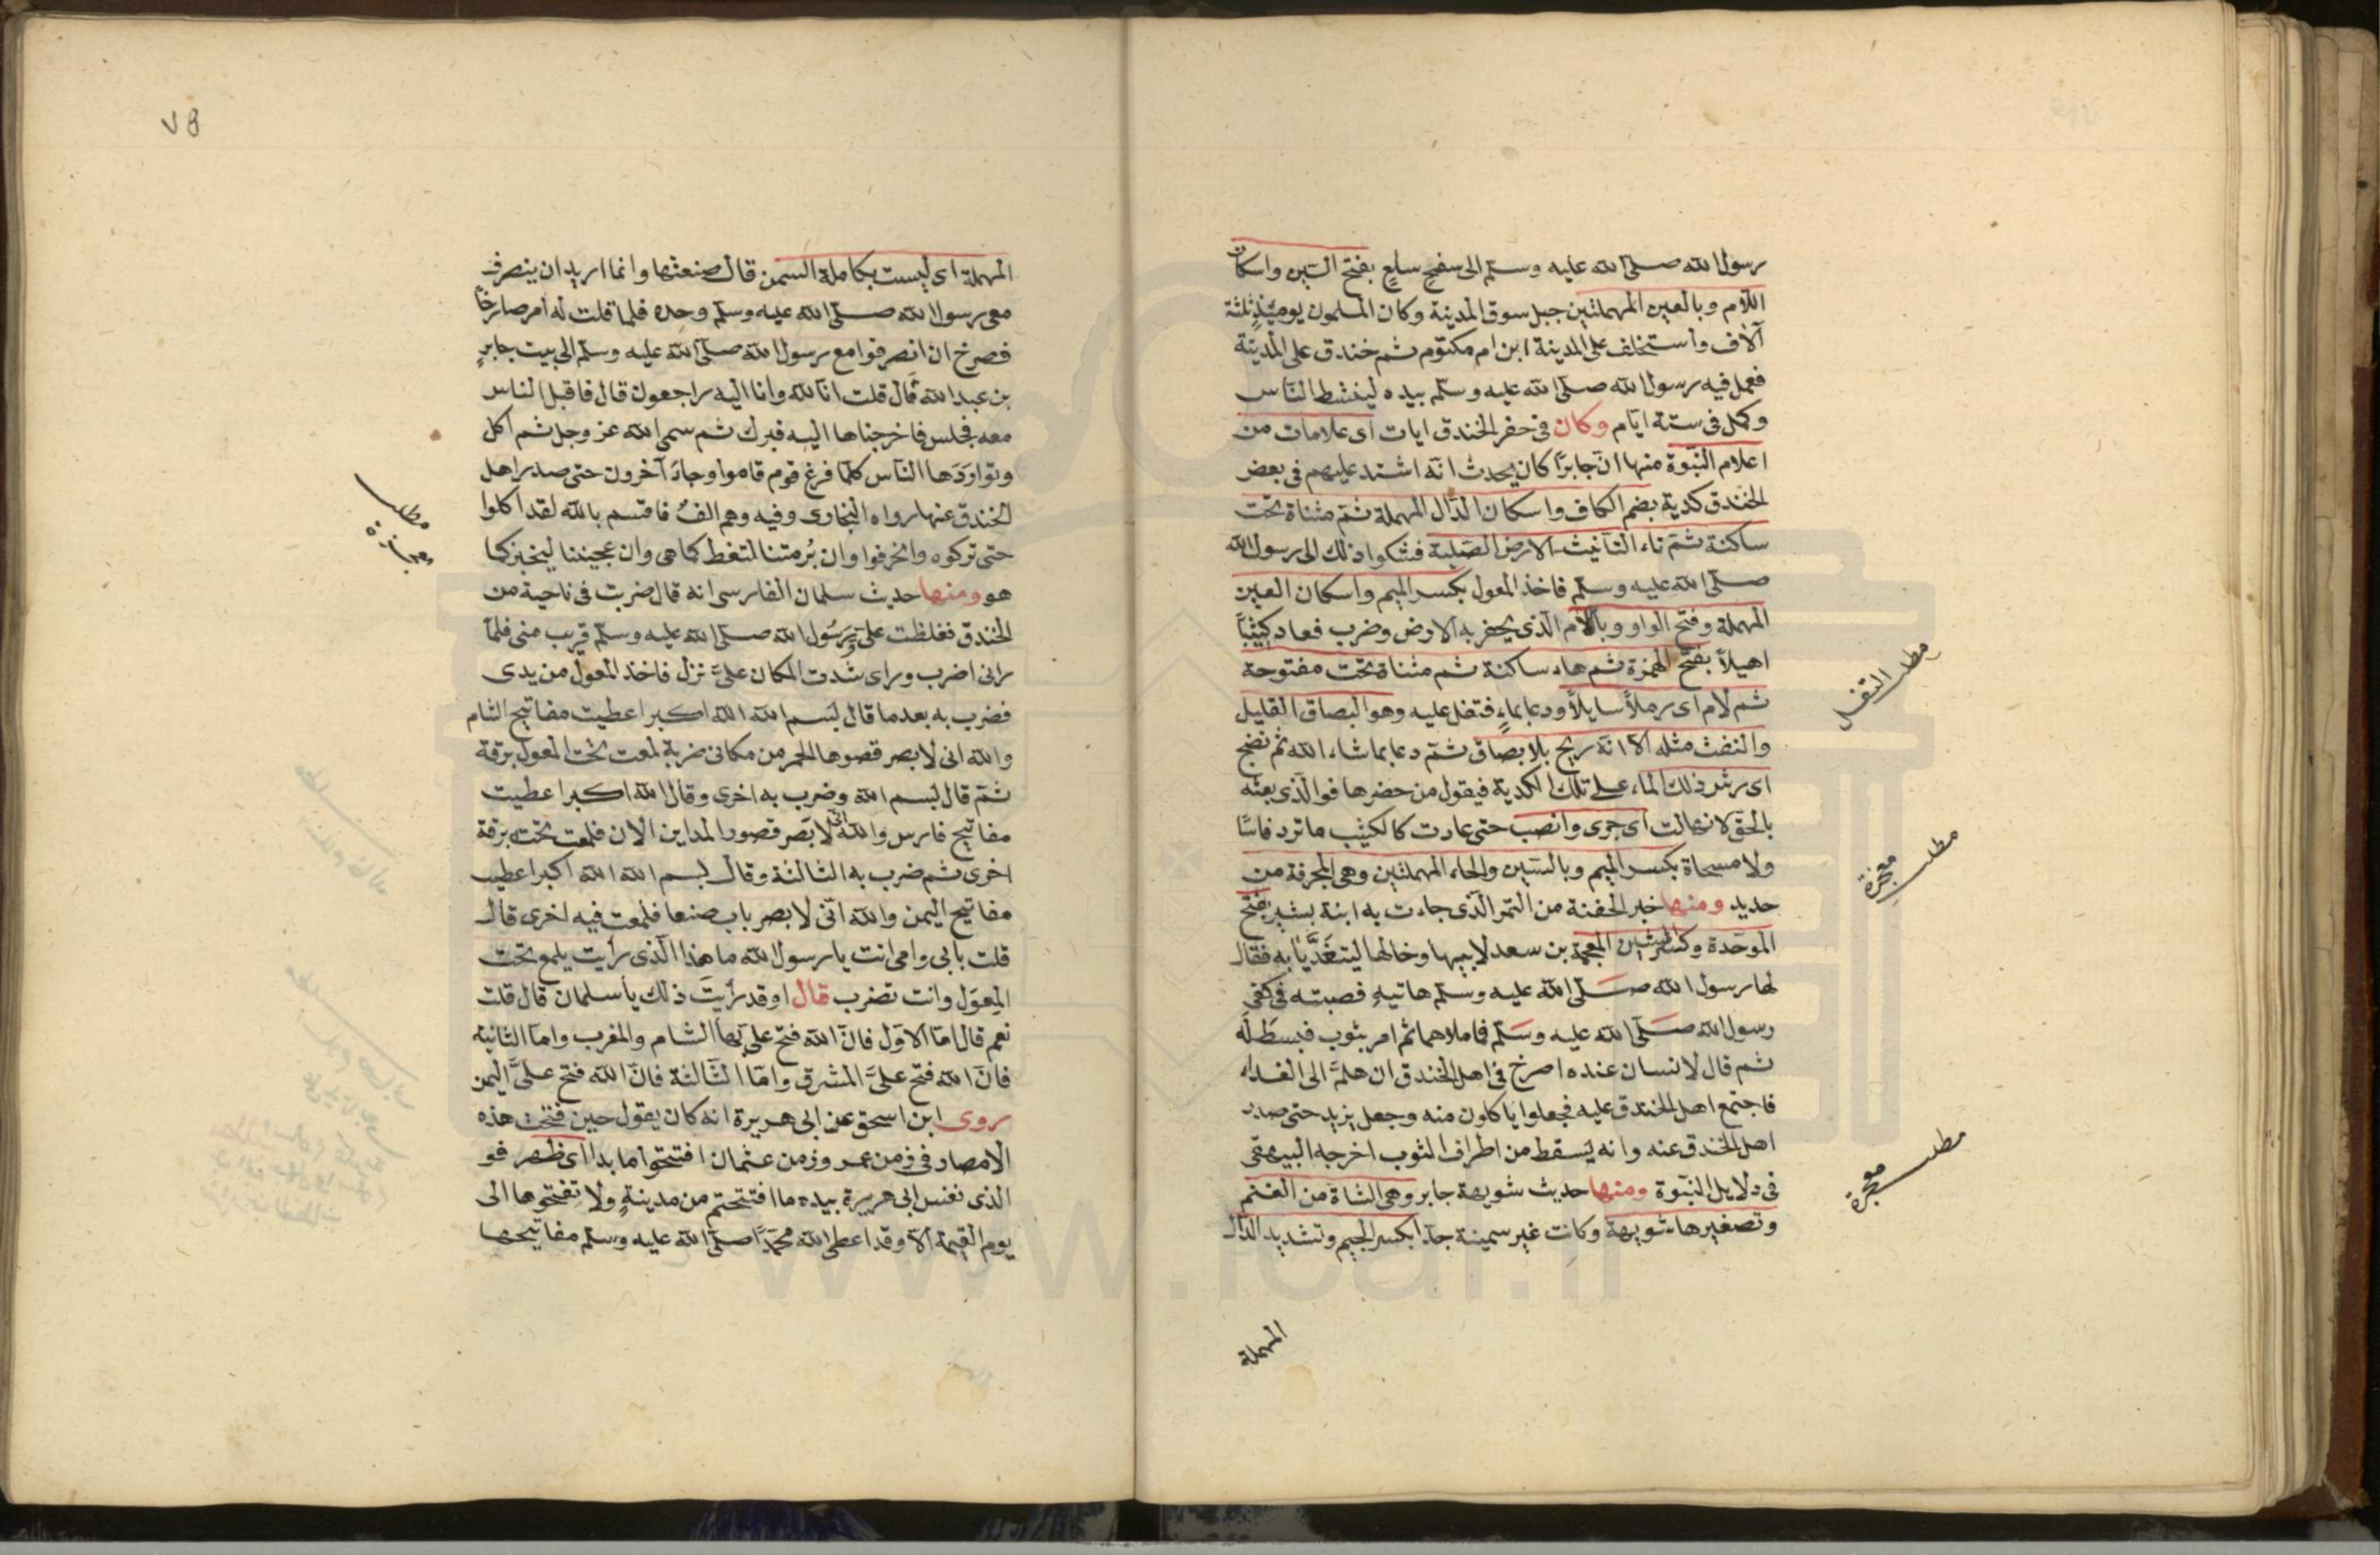 رسول الله صلى الله عليه وسلم الى سفح سلع بفتح السين واسكان
اللام وبالعين المهملتين جبل سوق المدينة وكان المسلمون يومئذ ثلثة
آلاف واستخلف على المدينة ابن ام مكتوم ثم خندق على المدينة
فعمل فيه رسول الله صلى الله عليه وسلم بيده لينشط الناس
وكمل فى ستة ايام وكان فى حفر الخندق ايات اى علامات من
اعلام النبوة منها ان جابرا كان يحدث انه اشتد عليهم فى بعض
الخندق كدية بضم الكاف واسكان الدال المهملة ثم مثناة تحت
ساكنة ثم تاء التأنيث الارض الصلبة فشكوا ذلك الى رسول الله
صلى الله عليه وسلم فاخذ المعول بكسر الميم واسكان العين
المهملة وفتح الواو وباللام الذى يحفر به الارض وضرب فعاد كثيبا
اهيلا بفتح الهمزة ثم هاء ساكنة ثم مثناة تحت مفتوحة
ثم لام اى رملا سايلا ودعا بماء فتفل عليه وهو البصاق القليل
والنفث مثله الا انه ريح بلا بصاق ثم دعا بما شاء الله ثم نضح
اى رش ذلك الماء على تلك الكدية فيقول من حضرها فوالذى بعثه
بالحق لانهالت اى جرى وانصب حتى عادت كالكثيب ما ترد فاسا
ولا مسحاة بكسر الميم وبالسين والحاء المهملتين وهى المجرفة من
حديد ومنها خبر الحفنة من التمر الذى جاءت به ابنة بشير بفتح
الموحدة وكسر الشين المعجمة بن سعد لابيها وخالها ليتغديا به فقال
لها رسول الله صلى الله عليه وسلم هاتيه فصبته فى كفى
رسول الله صلى الله عليه وسلم فما ملاهما ثم امر بثوب فبسط له
ثم قال لانسان عنده اصرخ فى اهل الخندق ان هلم الى الغداء
فاجتمع اهل الخندق عليه فجعلوا ياكلون منه وجعل يزيد حتى صدر
اهل الخندق عنه وانه يسقط من اطراف الثوب اخرجه البيهقى
فى دلايل النبوة ومنها حديث شويهة جابر وهى الشاة من الغنم
وتصغيرها شويهة وكانت غير سمينة جدا بكسر الجيم وتشديد الدال
المهملة
مطلب التفل
مطلب معجزة
مطلب معجزة
٧٥
المهملة اى ليست بكاملة السمن قال صنعتها وانما اريد ان ينصرف
معى رسول الله صلى الله عليه وسلم وحده فلما قلت له امر صارخا
فصرخ ان انصرفوا مع رسول الله صلى الله عليه وسلم الى بيت جابر
بن عبد الله قال قلت انا لله وانا اليه راجعون قال فاقبل الناس
معه فجلس فاخرجناها اليه فبرك ثم سمى الله عز وجل ثم اكل
وتواردها الناس كلما فرغ قوم قاموا وجاء آخرون حتى صدر اهل
الخندق عنها رواه البخارى وفيه وهم الف فاقسم بالله لقد اكلوا
حتى تركوه وانحرفوا وان برمتنا لتغط كما هى وان عجيننا ليخبز كما
هو ومنها حديث سلمان الفارسى انه قال ضربت فى ناحية من
الخندق فغلظت على ورسول الله صلى الله عليه وسلم قريب منى فلما
رانى اضرب وراى شدت المكان على نزل فاخذ المعول من يدى
فضرب به بعدما قال بسم الله الله اكبر اعطيت مفاتيح الشام
والله انى لابصر قصوها الحمر من مكانى ضربة لمعت تحت المعول برقة
ثم قال بسم الله وضرب به اخرى وقال الله اكبر اعطيت
مفاتيح فارس والله انى لابصر قصور المداين الان فلمعت تحته برقة
اخرى ثم ضرب به الثالثة وقال بسم الله الله اكبر اعطيت
مفاتيح اليمن والله انى لابصر باب صنعا فلمعت فيه اخرى قال
قلت بابى وامى انت يا رسول الله ما هذا الذى رأيت يلمع تحت
المعول وانت تضرب قال اوقد رأيت ذلك يا سلمان قال قلت
نعم قال اما الاول فان الله فتح على بها الشام والمغرب واما الثانية
فان الله فتح على المشرق واما الثالثة فان الله فتح على اليمن
روى ابن اسحق عن ابى هريرة انه كان يقول حين فتحت هذه
الامصار فى زمن عمر وزمن عثمان افتتحوا ما بدا اى ظهر فو
الذى نفس ابى هريرة بيده ما افتتحتم من مدينة ولا تفتحوها الى
يوم القيمة الا وقد اعطى الله محمدا صلى الله عليه وسلم مفاتيحها
مطلب
www.ical.ir